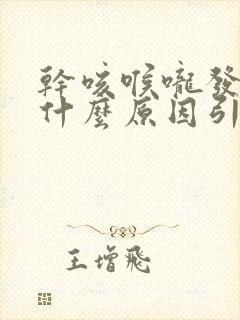 幹咳喉嚨發
什麼原因引
王增飛